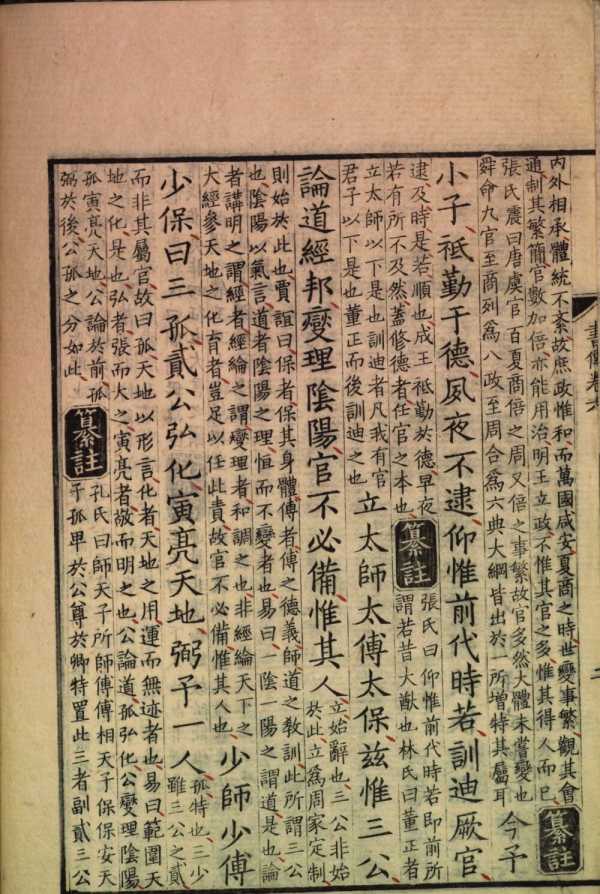 書傳卷六
內外相承體統不紊故庶政惟和而萬國咸安夏商之時世變事繁觀其會
通制其繁簡官數加倍亦能用治明王立政不惟其官之多惟其得人而已
纂註
張氏震曰唐虞官百夏商倍之周又倍之事繁故官多然大體未嘗變也
舜命九官至商列為八政至周合為六典大綱皆出於一所增特其屬耳
今予
小子祗勤于德夙夜不逮仰惟前代時若訓迪厥官
逮及時是若順也成王祗勤於德早夜
若有所不及然蓋修德者任官之本也
纂註
張氏曰仰惟前代時若即前所
謂若昔大猷也林氏曰董正者
立太師以下是也訓迪者凡我有官
君子以下是也董正而後訓迪之也
立太師太傅太保茲惟三公
論道經邦燮理陰陽官不必備惟其人
立始辭也三公非始
於此立為周家定制
則始於此也賈誼曰保者保其身體傅者傅之德義師道之敎訓此所謂三公
也陰陽以氣言道者陰陽之理恒而不變者也易曰一陰一陽之謂道是也論
者講明之謂經者經綸之謂燮理者和調之也非經綸天下之
大經參天地之化育者豈足以任此責故官不必備惟其人也
少師少傅
少保曰三孤貳公弘化寅亮天地弼予一人
孤特也三少
雖三公之貳
而非其屬官故曰孤天地以形言化者天地之用運而無迹者也易曰範圍天
地之化是也弘者張而大之寅亮者敬而明之也公論道孤弘化公燮理陰陽
孤寅亮天地公論於前孤
弼於後公孤之分如此
纂註
孔氏曰師天子所師傅傅相天子保保安天
子孤卑於公尊於卿特置此三者副貳三公